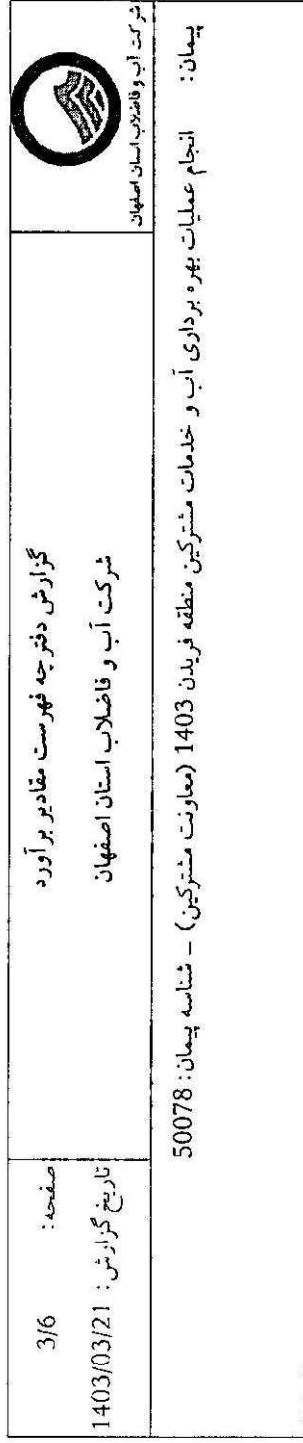 شرکت آب و فاضلاب استان اصفهان
گزارش دفترچه فهرست مقادیر برآورد
شرکت آب و فاضلاب استان اصفهان
صفحه: 3/6
تاریخ گزارش: 1403/03/21
پیمان: انجام عملیات بهره برداری آب و خدمات مشترکین منطقه فریدن 1403 (معاونت مشترکین) - شناسه پیمان: 50078